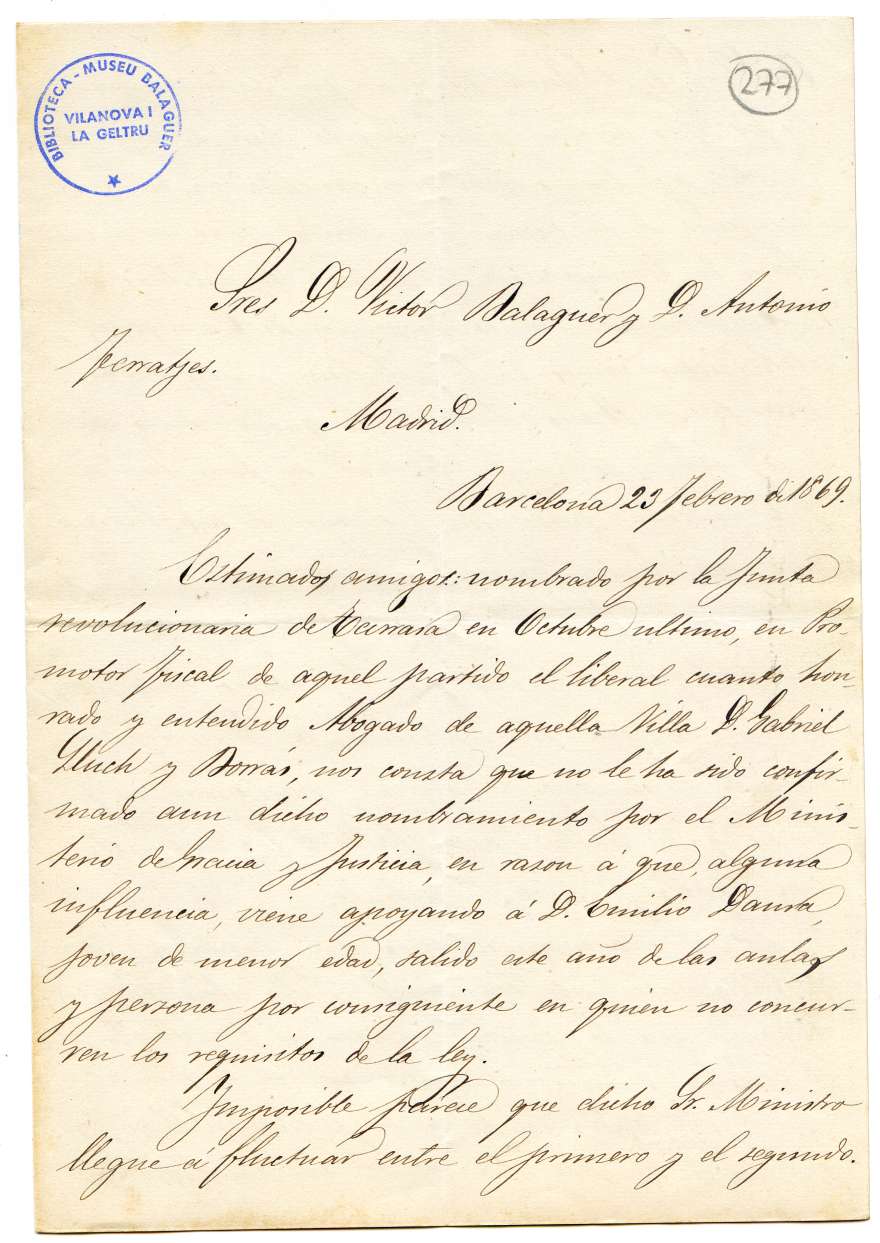 BIBLIOTECA - MUSEU BALAGUER
VILANOVA I
LA GELTRU
277
Sres D. Victor Balaguer y D. Antonio
Ferratjes.
Madrid.
Barcelona 23 Febrero de 1869.
Estimados amigos: nombrado por la Junta
revolucionaria de Tarrasa en Octubre ultimo, en Pro-
motor fiscal de aquel partido el liberal cuanto hon-
rado y entendido Abogado de aquella Villa D. Gabriel
Lluch y Borrás, nos consta que no le ha sido confir-
mado aun dicho nombramiento por el Minis-
terio de Gracia y Justicia, en rason á que, alguna
influencia, viene apoyando á D. Emilio Daura,
joven de menor edad, salido este año de las aulas
y persona por consiguiente en quien no concur-
ren los requisitos de la ley.
Imposible parece que dicho Sr. Ministro
llegue á fluctuar entre el primero y el segundo.